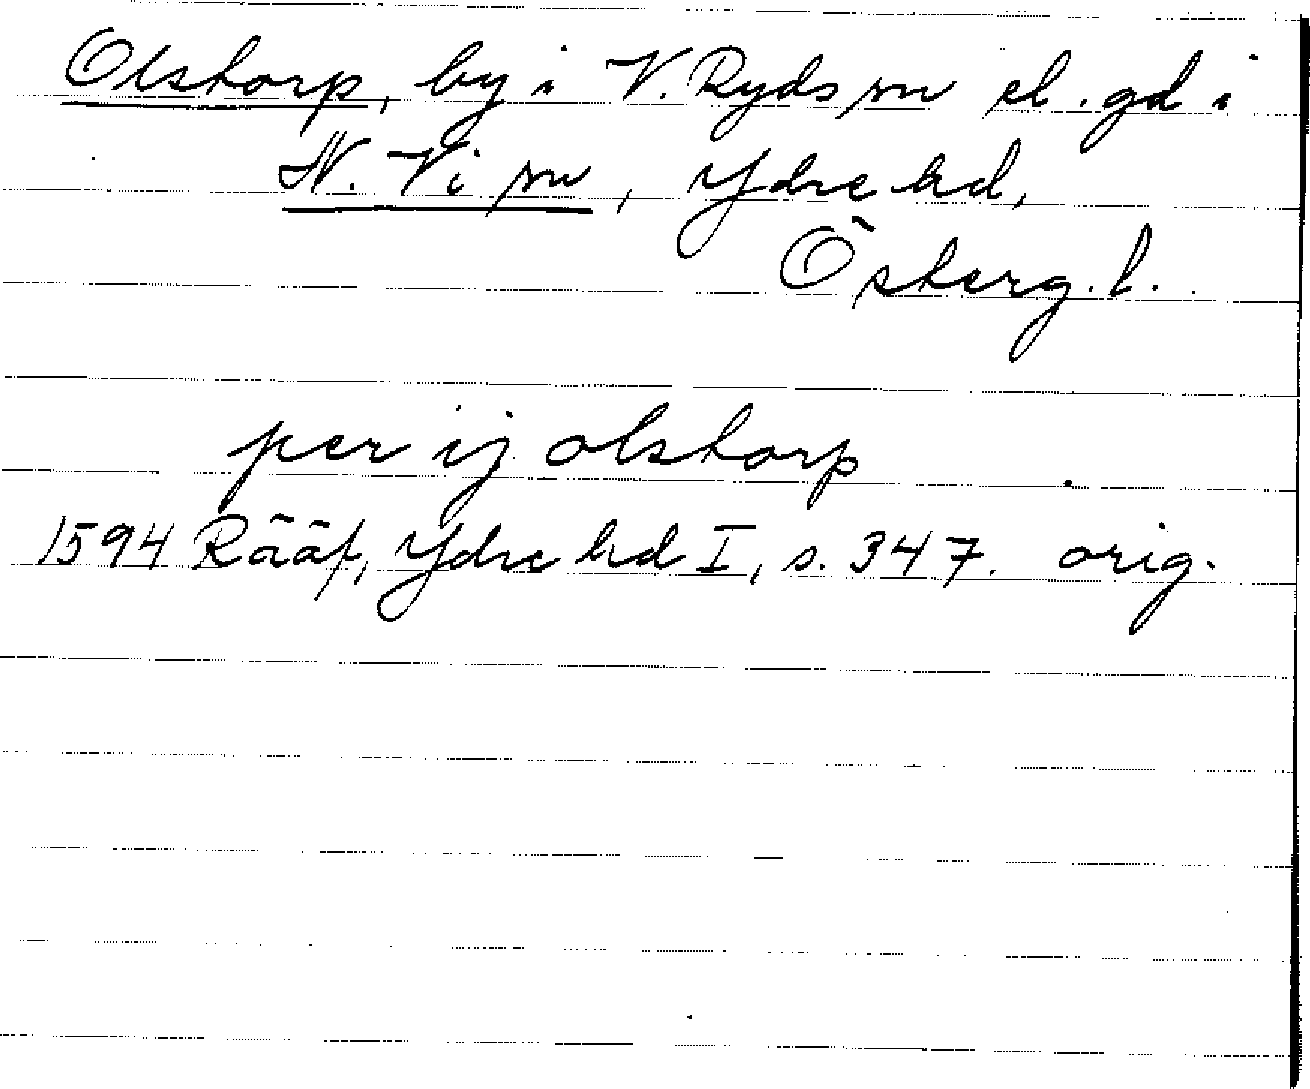 Olstorp, by i V. Ryds sn el. gd i
N. Vi sn, Ydre hd,
Österg. l.
per ij olstorp
1594 Rääf, Ydre hd I, s. 347. orig.